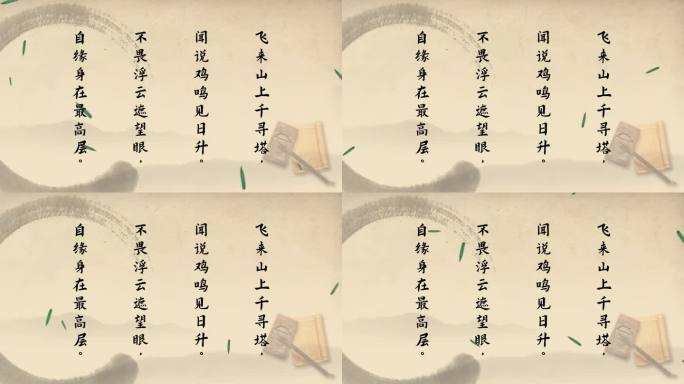 飞来山上千寻塔，
闻说鸡鸣见日升。
不畏浮云遮望眼，
自缘身在最高层。
飞来山上千寻塔，
闻说鸡鸣见日升。
不畏浮云遮望眼，
自缘身在最高层。
飞来山上千寻塔，
闻说鸡鸣见日升。
不畏浮云遮望眼，
自缘身在最高层。
飞来山上千寻塔，
闻说鸡鸣见日升。
不畏浮云遮望眼，
自缘身在最高层。